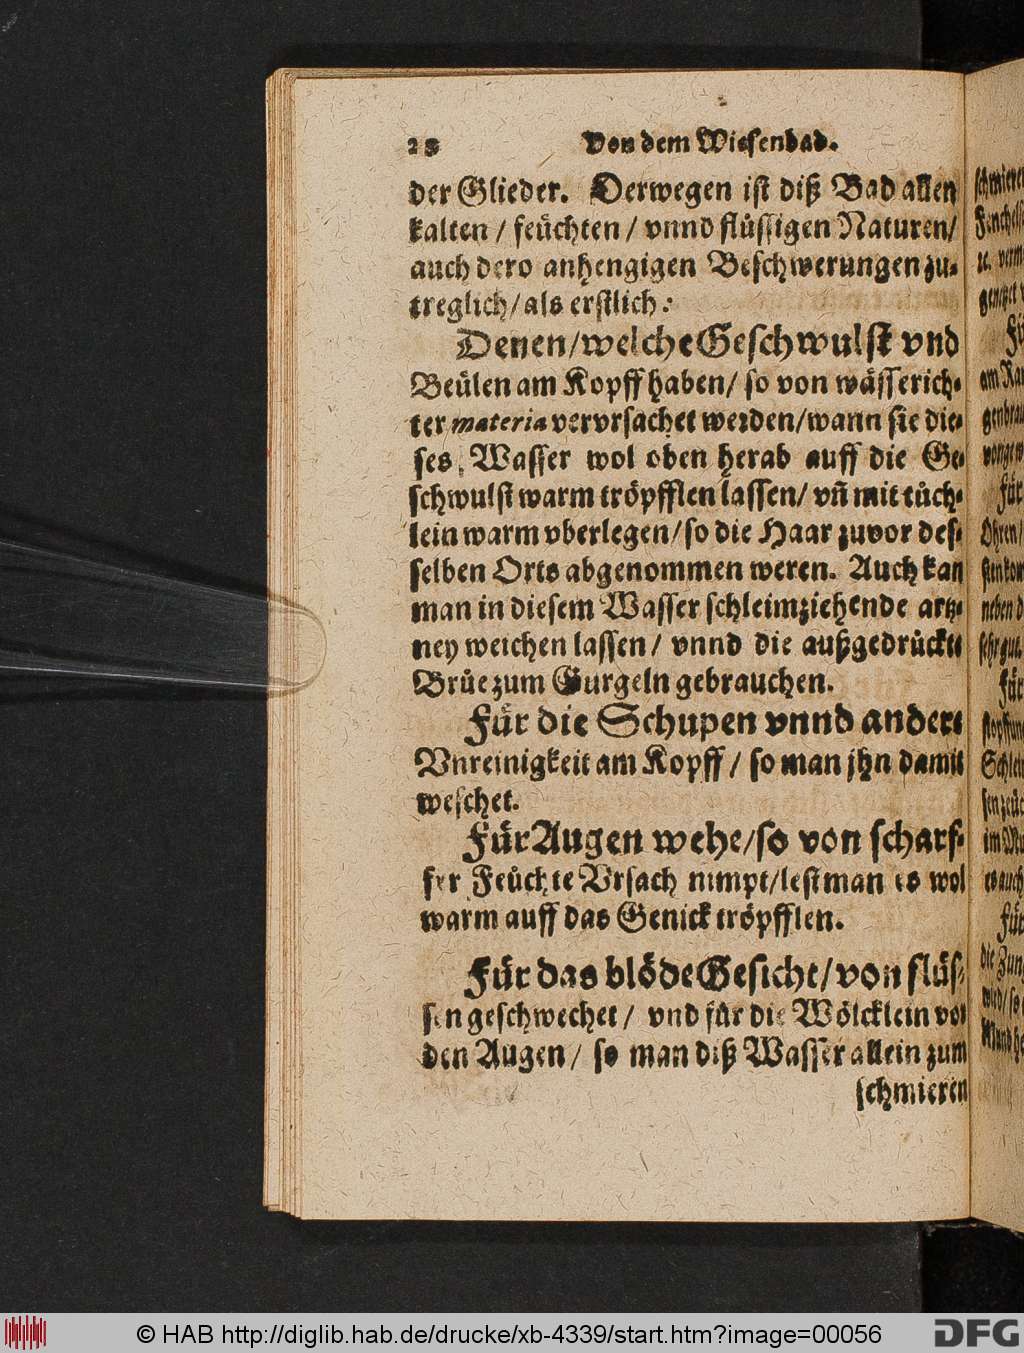 28 Von dem Wiesenbad.
der Glieder. Derwegen ist diß Bad allen
kalten / feüchten / vnnd flüssigen Naturen/
auch dero anhengigen Beschwerungen zu-
treglich/ als erstlich:
Denen/welche Geschwulst vnd
Beülen am Kopff haben/ so von wässerich-
ter materia vervrsachet werden/wann sie die-
ses Wasser wol oben herab auff die Ge-
schwulst warm tröpfflen lassen/ vñ mit tüch-
lein warm vberlegen/so die Haar zuvor des-
selben Orts abgenommen weren. Auch kan
man in diesem Wasser schleimziehende artz-
ney weichen lassen/ vnnd die außgedrückte
Brüe zum Gurgeln gebrauchen.
Für die Schupen vnnd andere
Vnreinigkeit am Kopff / so man jhn damit
weschet.
Für Augen wehe/so von scharf-
fer Feüchte Vrsach nimpt/lest man es wol
warm auff das Genick tröpfflen.
Für das blöde Gesicht/von flüs-
sen geschwechet / vnd für die Wölcklein vor
den Augen / so man diß Wasser allein zum
schmieren
© HAB http://diglib.hab.de/drucke/xb-4339/start.htm?image=00056
DFG